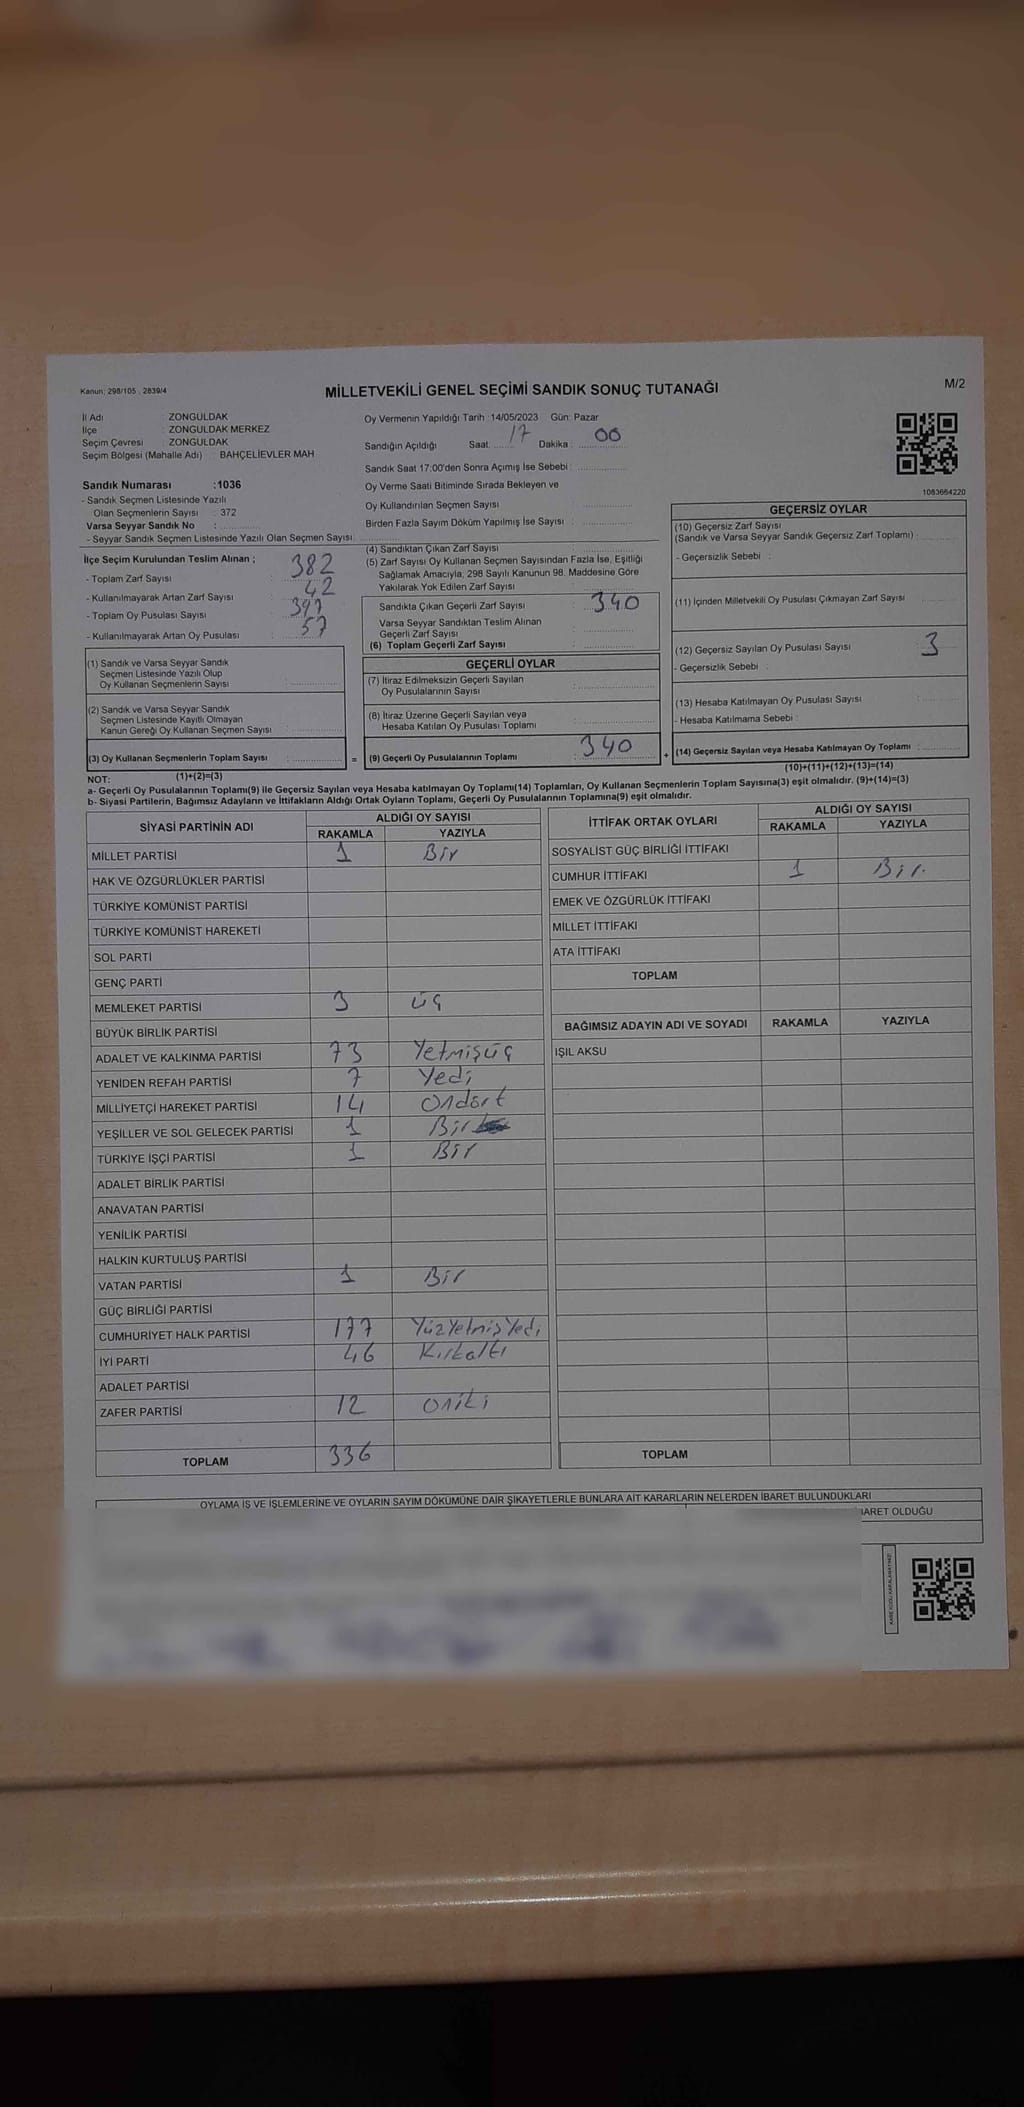 Kanun: 298/105 , 2839/4
MİLLETVEKİLİ GENEL SEÇİMİ SANDIK SONUÇ TUTANAĞI
M/2
İl Adı : ZONGULDAK
İlçe : ZONGULDAK MERKEZ
Seçim Çevresi : ZONGULDAK
Seçim Bölgesi (Mahalle Adı) : BAHÇELİEVLER MAH
Sandık Numarası :1036
- Sandık Seçmen Listesinde Yazılı
Olan Seçmenlerin Sayısı : 372
Varsa Seyyar Sandık No :
- Seyyar Sandık Seçmen Listesinde Yazılı Olan Seçmen Sayısı:
İlçe Seçim Kurulundan Teslim Alınan ;
- Toplam Zarf Sayısı : 382
- Kullanılmayarak Artan Zarf Sayısı : 42
- Toplam Oy Pusulası Sayısı : 397
- Kullanılmayarak Artan Oy Pusulası : 57
(1) Sandık ve Varsa Seyyar Sandık
Seçmen Listesinde Yazılı Olup
Oy Kullanan Seçmenlerin Sayısı :
(2) Sandık ve Varsa Seyyar Sandık
Seçmen Listesinde Kayıtlı Olmayan
Kanun Gereği Oy Kullanan Seçmen Sayısı :
(3) Oy Kullanan Seçmenlerin Toplam Sayısı :
Oy Vermenin Yapıldığı Tarih :14/05/2023 Gün: Pazar
Sandığın Açıldığı Saat: 17 Dakika : 00
Sandık Saat 17:00'den Sonra Açımış İse Sebebi :
Oy Verme Saati Bitiminde Sırada Bekleyen ve
Oy Kullandırılan Seçmen Sayısı :
Birden Fazla Sayım Döküm Yapılmış İse Sayısı :
(4) Sandıktan Çıkan Zarf Sayısı :
(5) Zarf Sayısı Oy Kullanan Seçmen Sayısından Fazla İse, Eşitliği
Sağlamak Amacıyla, 298 Sayılı Kanunun 98. Maddesine Göre
Yakılarak Yok Edilen Zarf Sayısı :
Sandıkta Çıkan Geçerli Zarf Sayısı : 340
Varsa Seyyar Sandıktan Teslim Alınan
Geçerli Zarf Sayısı :
(6) Toplam Geçerli Zarf Sayısı :
GEÇERLİ OYLAR
(7) İtiraz Edilmeksizin Geçerli Sayılan
Oy Pusulalarının Sayısı :
(8) İtiraz Üzerine Geçerli Sayılan veya
Hesaba Katılan Oy Pusulası Toplamı :
= (9) Geçerli Oy Pusulalarının Toplamı : 340 +
1083664220
GEÇERSİZ OYLAR
(10) Geçersiz Zarf Sayısı
(Sandık ve Varsa Seyyar Sandık Geçersiz Zarf Toplamı) :
- Geçersizlik Sebebi :
(11) İçinden Milletvekili Oy Pusulası Çıkmayan Zarf Sayısı :
(12) Geçersiz Sayılan Oy Pusulası Sayısı : 3
- Geçersizlik Sebebi :
(13) Hesaba Katılmayan Oy Pusulası Sayısı :
- Hesaba Katılmama Sebebi :
(14) Geçersiz Sayılan veya Hesaba Katılmayan Oy Toplamı :
NOT: (1)+(2)=(3)
(10)+(11)+(12)+(13)=(14)
a- Geçerli Oy Pusulalarının Toplamı(9) ile Geçersiz Sayılan veya Hesaba katılmayan Oy Toplamı(14) Toplamları, Oy Kullanan Seçmenlerin Toplam Sayısına(3) eşit olmalıdır. (9)+(14)=(3)
b- Siyasi Partilerin, Bağımsız Adayların ve İttifakların Aldığı Ortak Oyların Toplamı, Geçerli Oy Pusulalarının Toplamına(9) eşit olmalıdır.
SİYASİ PARTİNİN ADI ALDIĞI OY SAYISI
RAKAMLA YAZIYLA
MİLLET PARTİSİ 1 Bir
HAK VE ÖZGÜRLÜKLER PARTİSİ
TÜRKİYE KOMÜNİST PARTİSİ
TÜRKİYE KOMÜNİST HAREKETİ
SOL PARTİ
GENÇ PARTİ
MEMLEKET PARTİSİ 3 üç
BÜYÜK BİRLİK PARTİSİ
ADALET VE KALKINMA PARTİSİ 73 Yetmişüç
YENİDEN REFAH PARTİSİ 7 Yedi
MİLLİYETÇİ HAREKET PARTİSİ 14 Ondört
YEŞİLLER VE SOL GELECEK PARTİSİ 1 Bir
TÜRKİYE İŞÇİ PARTİSİ 1 Bir
ADALET BİRLİK PARTİSİ
ANAVATAN PARTİSİ
YENİLİK PARTİSİ
HALKIN KURTULUŞ PARTİSİ
VATAN PARTİSİ 1 Bir
GÜÇ BİRLİĞİ PARTİSİ
CUMHURİYET HALK PARTİSİ 177 YüzYetmişYedi
İYİ PARTİ 46 Kırkaltı
ADALET PARTİSİ
ZAFER PARTİSİ 12 Oniki
TOPLAM 336
İTTİFAK ORTAK OYLARI ALDIĞI OY SAYISI
RAKAMLA YAZIYLA
SOSYALİST GÜÇ BİRLİĞİ İTTİFAKI
CUMHUR İTTİFAKI 1 Bir.
EMEK VE ÖZGÜRLÜK İTTİFAKI
MİLLET İTTİFAKI
ATA İTTİFAKI
TOPLAM
BAĞIMSIZ ADAYIN ADI VE SOYADI RAKAMLA YAZIYLA
IŞIL AKSU
TOPLAM
OYLAMA İŞ VE İŞLEMLERİNE VE OYLARIN SAYIM DÖKÜMÜNE DAİR ŞİKAYETLERLE BUNLARA AİT KARARLARIN NELERDEN İBARET BULUNDUKLARI
İBARET OLDUĞU
KARE KODU KARALAMAYINIZ!